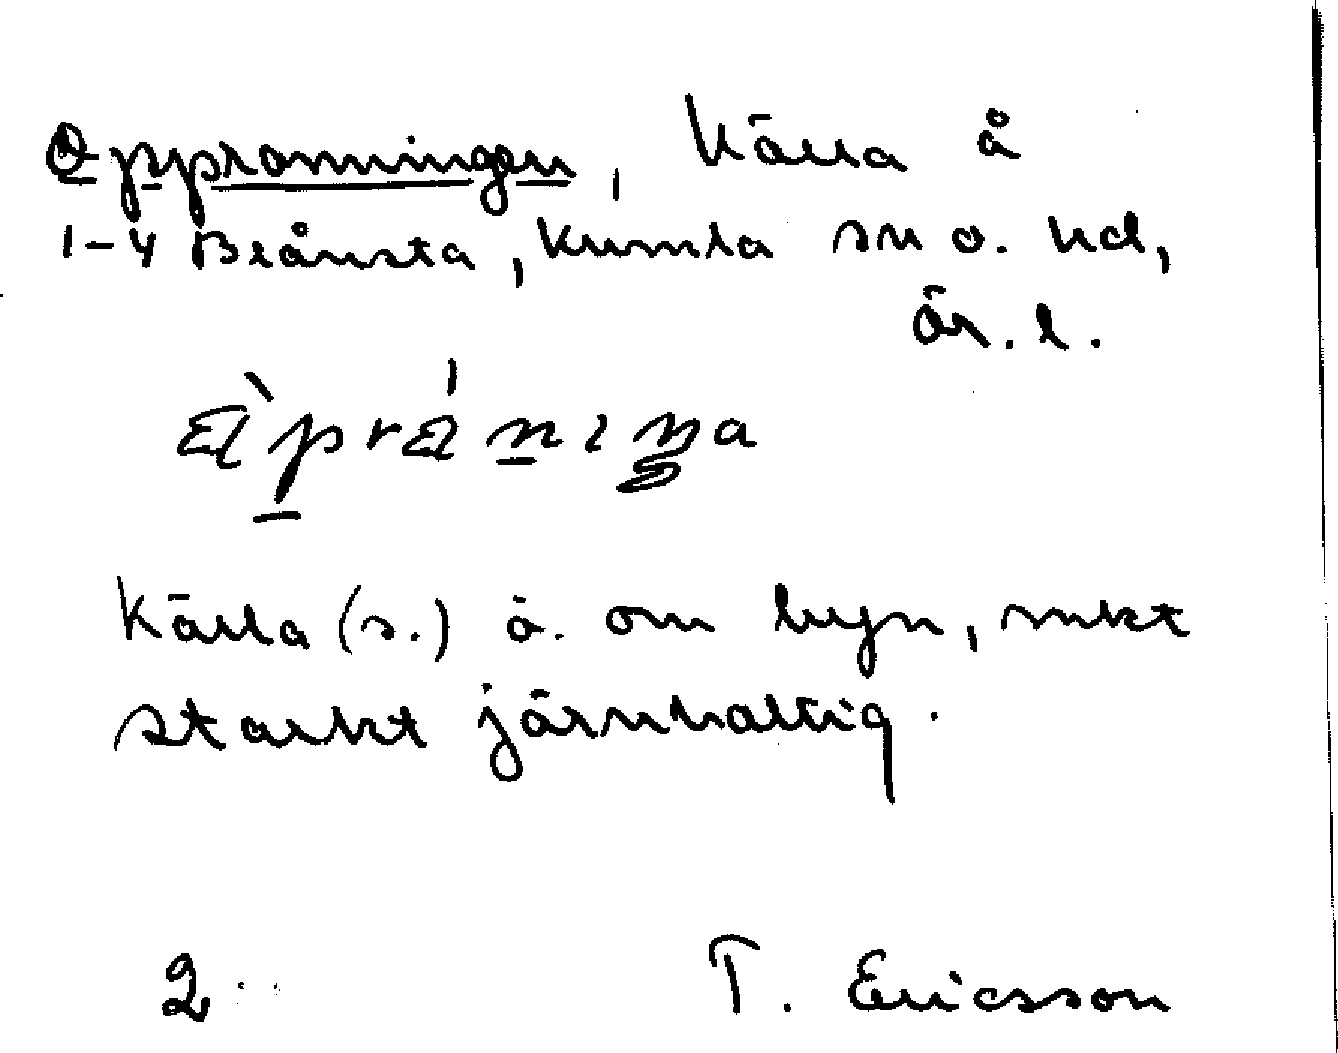 Oppranningen, Källa å
1-4 Blånsta, Kumla sn o. hd,
ör. l.
Källa (s.) ö. om byn, mkt
starkt järnhaltig.
2 T. Ericsson